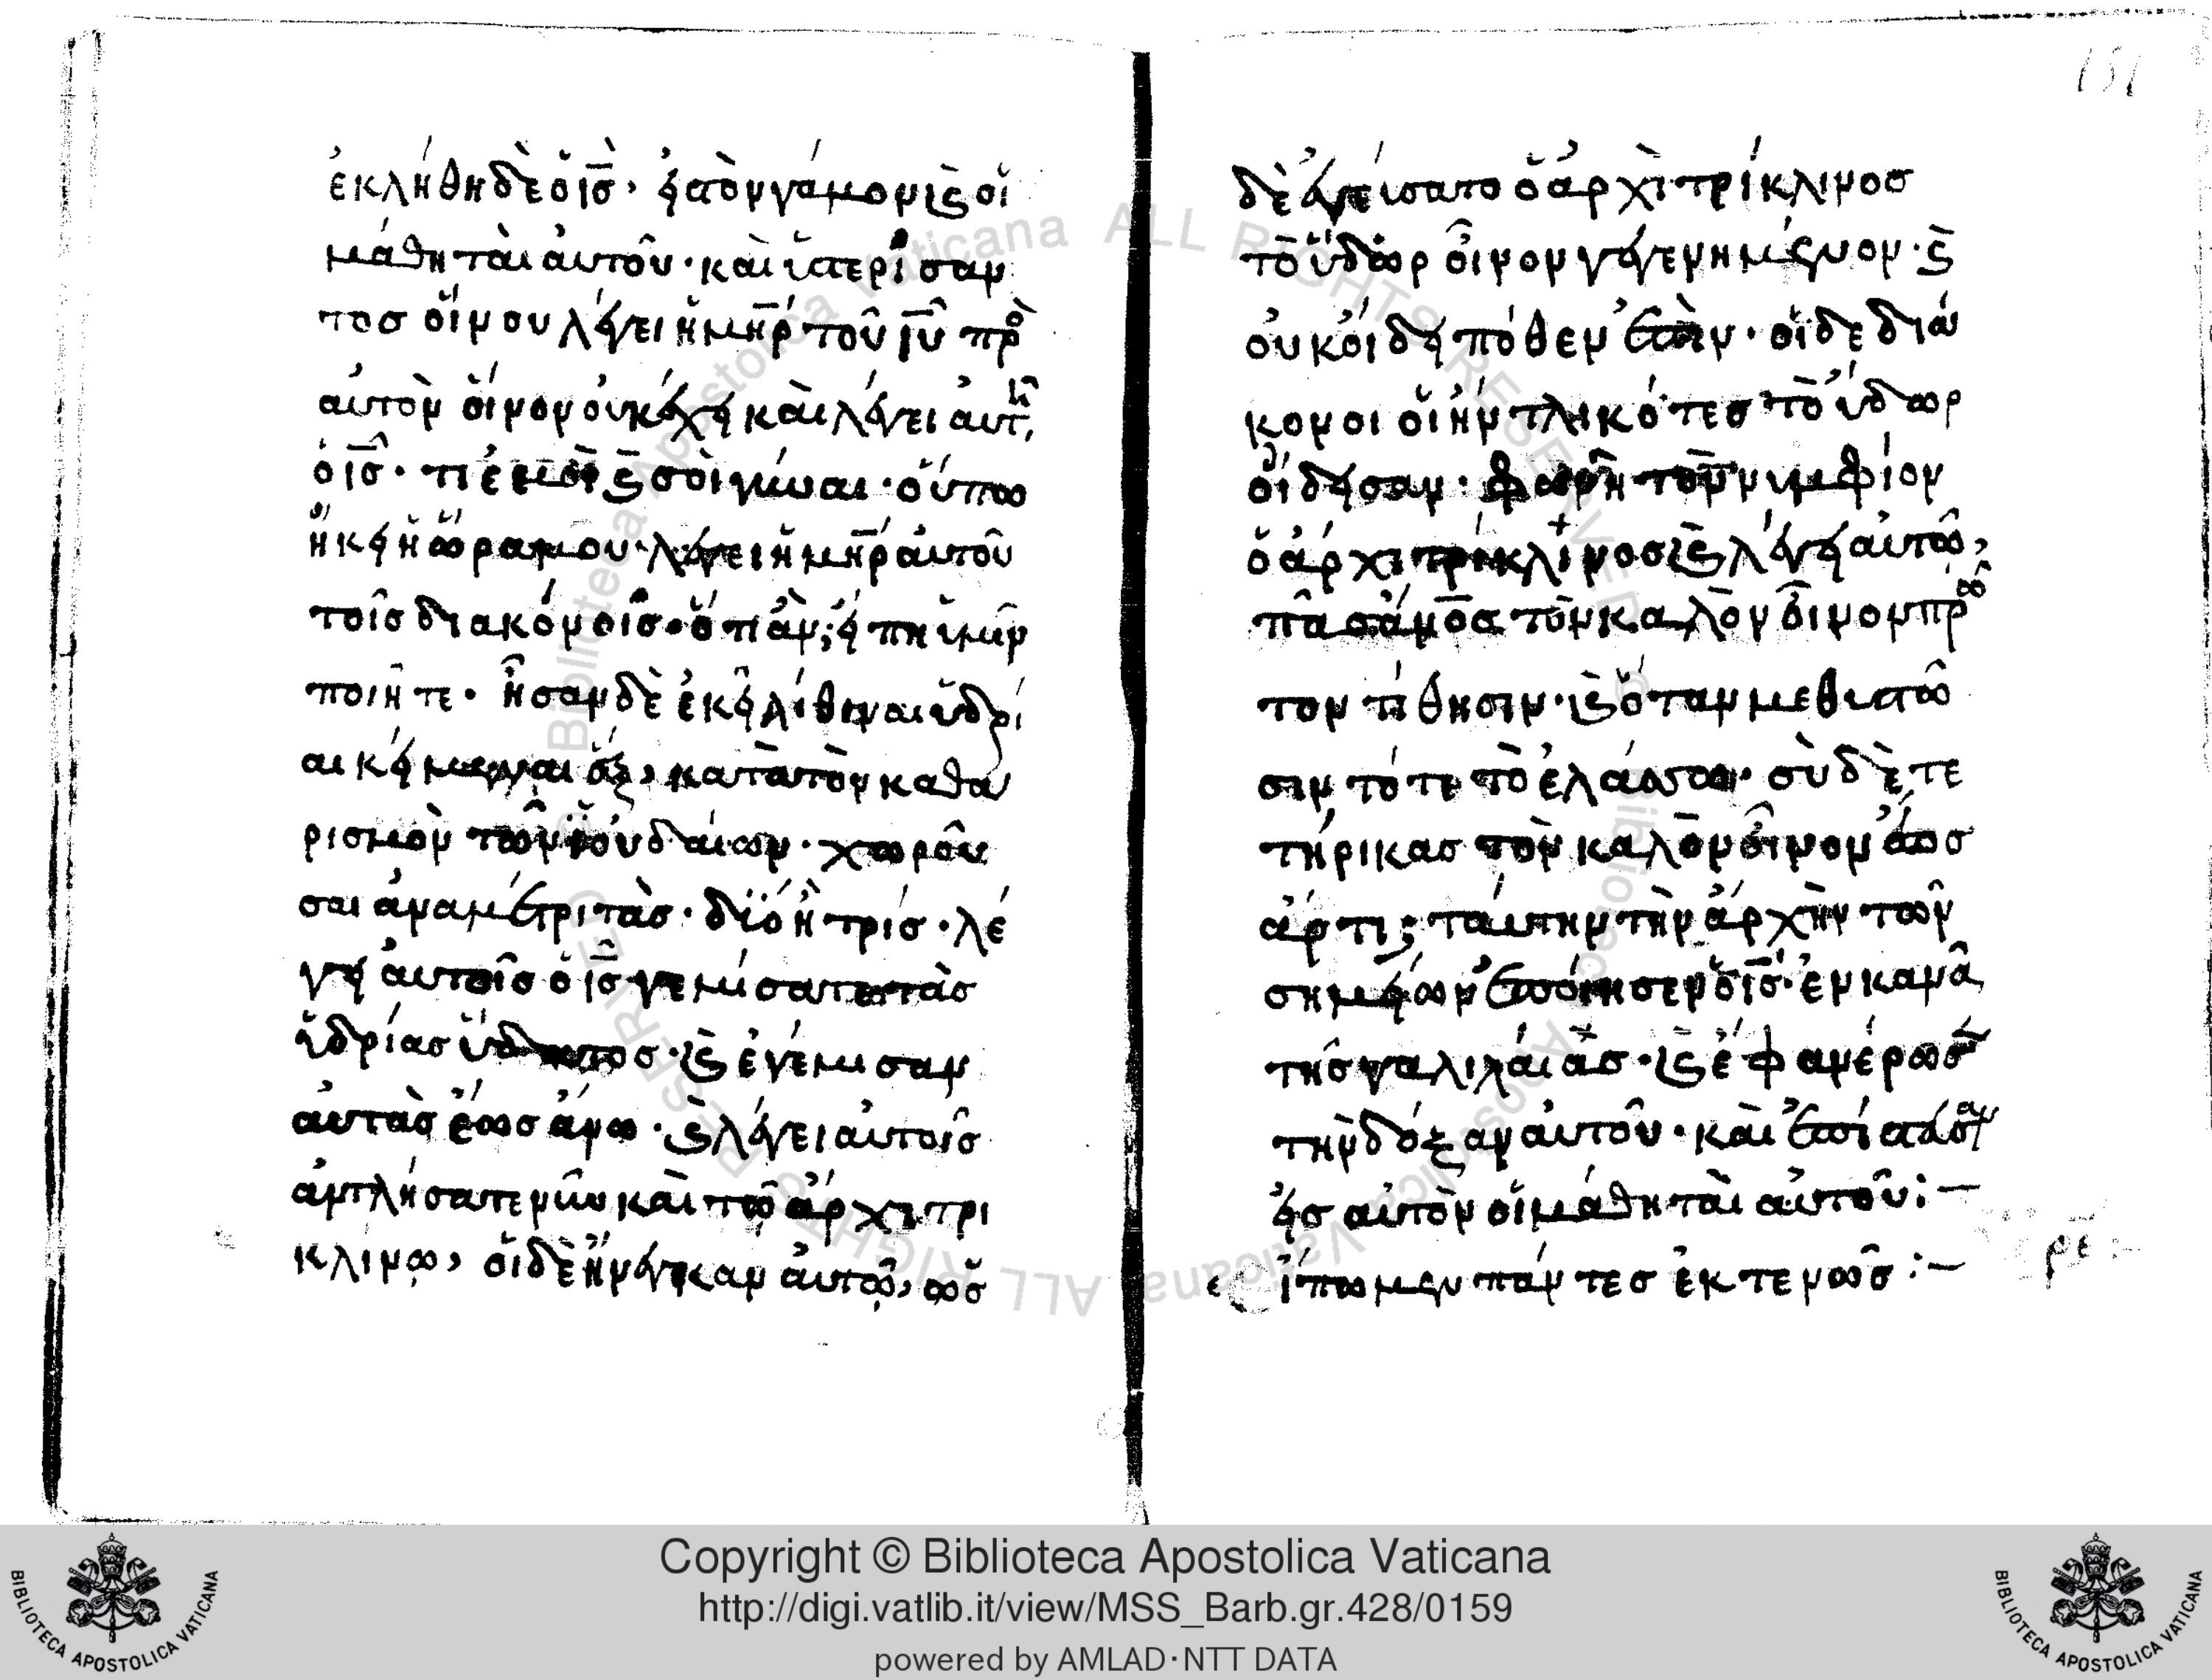 ἐκλήθη δὲ ὁ ις̅· εἰς τὸν γάμον κ̀ οἱ
μάθηται ἀυτοῦ· καὶ ὑστερίσαν
τοσ οἴνου λέγει ἡ μη̅ρ τοῦ ιυ̅ πρὸ
αυτὸν οἴνον ὀυκ έχει καὶ λέγει αυτῆ,
ὁ ις̅· τι ἐμοὶ κ̀ σοὶ γύναι· ὅυπω
ἥκει ἡ ὥρα μου· λέγει ἡ μη̅ρ ἀυτοῦ
τοῖσ διακόνοισ· ὅτι ὰν; είπη ὑμῖν
ποιῆτε· ἦσαν δὲ ἐκεῖ λίθιναι ὑδρί
αι κείμεναι ὅξ, κατὰ τὸν καθα
ρισμὸν τῶν ϊουδάιων· χωροῦ
σαι ἀναμέτριτὰσ· δϊὁ ἢ τρὶσ· λέ
γει ἀυτοῖσ ὁ ις̅ γεμίσατε τὰσ
ὑδρίασ ὕδατοσ· κ̀ ἐγέμισαν
ἀυτὰσ ἕωσ άνω· κ̀ λέγει ἀυτοῖσ
ἀντλήσατε νῦν καὶ τῶ ἀρχιτρι
κλίνω, οἱ δὲ ἤνέγκαν ἀυτῶ, ωσ
151
δὲ ἐγεύσατο ὁ ἀρχὶτρίκλινοσ
τὸ ὕδωρ οἶνον γεγενημένον· κ̀
ὀυκ όιδει πόθεν ἐστὶν· οἱ δε διά
κονοι οἱ ἠντλικότεσ τὸ ὕδωρ
οίδεισαν· φωνῆ τὸν νυμφίον
ὁ ἀρχιτρικλίνοσ κ̀ λέγει αυτῶ,
πᾶσ ἄνο̅σ τὸν καλὸν οἶνον πρῶ
τον τίθησιν· κ̀ ὅταν μεθυσθῶ
σιν τότε τὸ ἐλάσσω· σὺ δὲ τε
τήρικασ τὸν καλὸν οἶνον ἕωσ
ἀρτι; τάυτην τὴν ἀρχὴν τῶν
σημείων ἐποίησεν ὁ ις̅· ἐν κανᾶ
τῆσ γαλιλάιασ· κ̀ ἐφανέρωσε
τὴν δόξαν ἀυτοῦ· καὶ ἐπίστευσαν
εἰσ αὐτὸν οἱ μάθηται αὐτοῦ:—
ειπωμεν πάντεσ ἐκτενῶσ:—
Copyright © Biblioteca Apostolica Vaticana
http://digi.vatlib.it/view/MSS_Barb.gr.428/0159
powered by AMLAD·NTT DATA
BIBLIOTECA APOSTOLICA VATICANA
BIBLIOTECA APOSTOLICA VATICANA